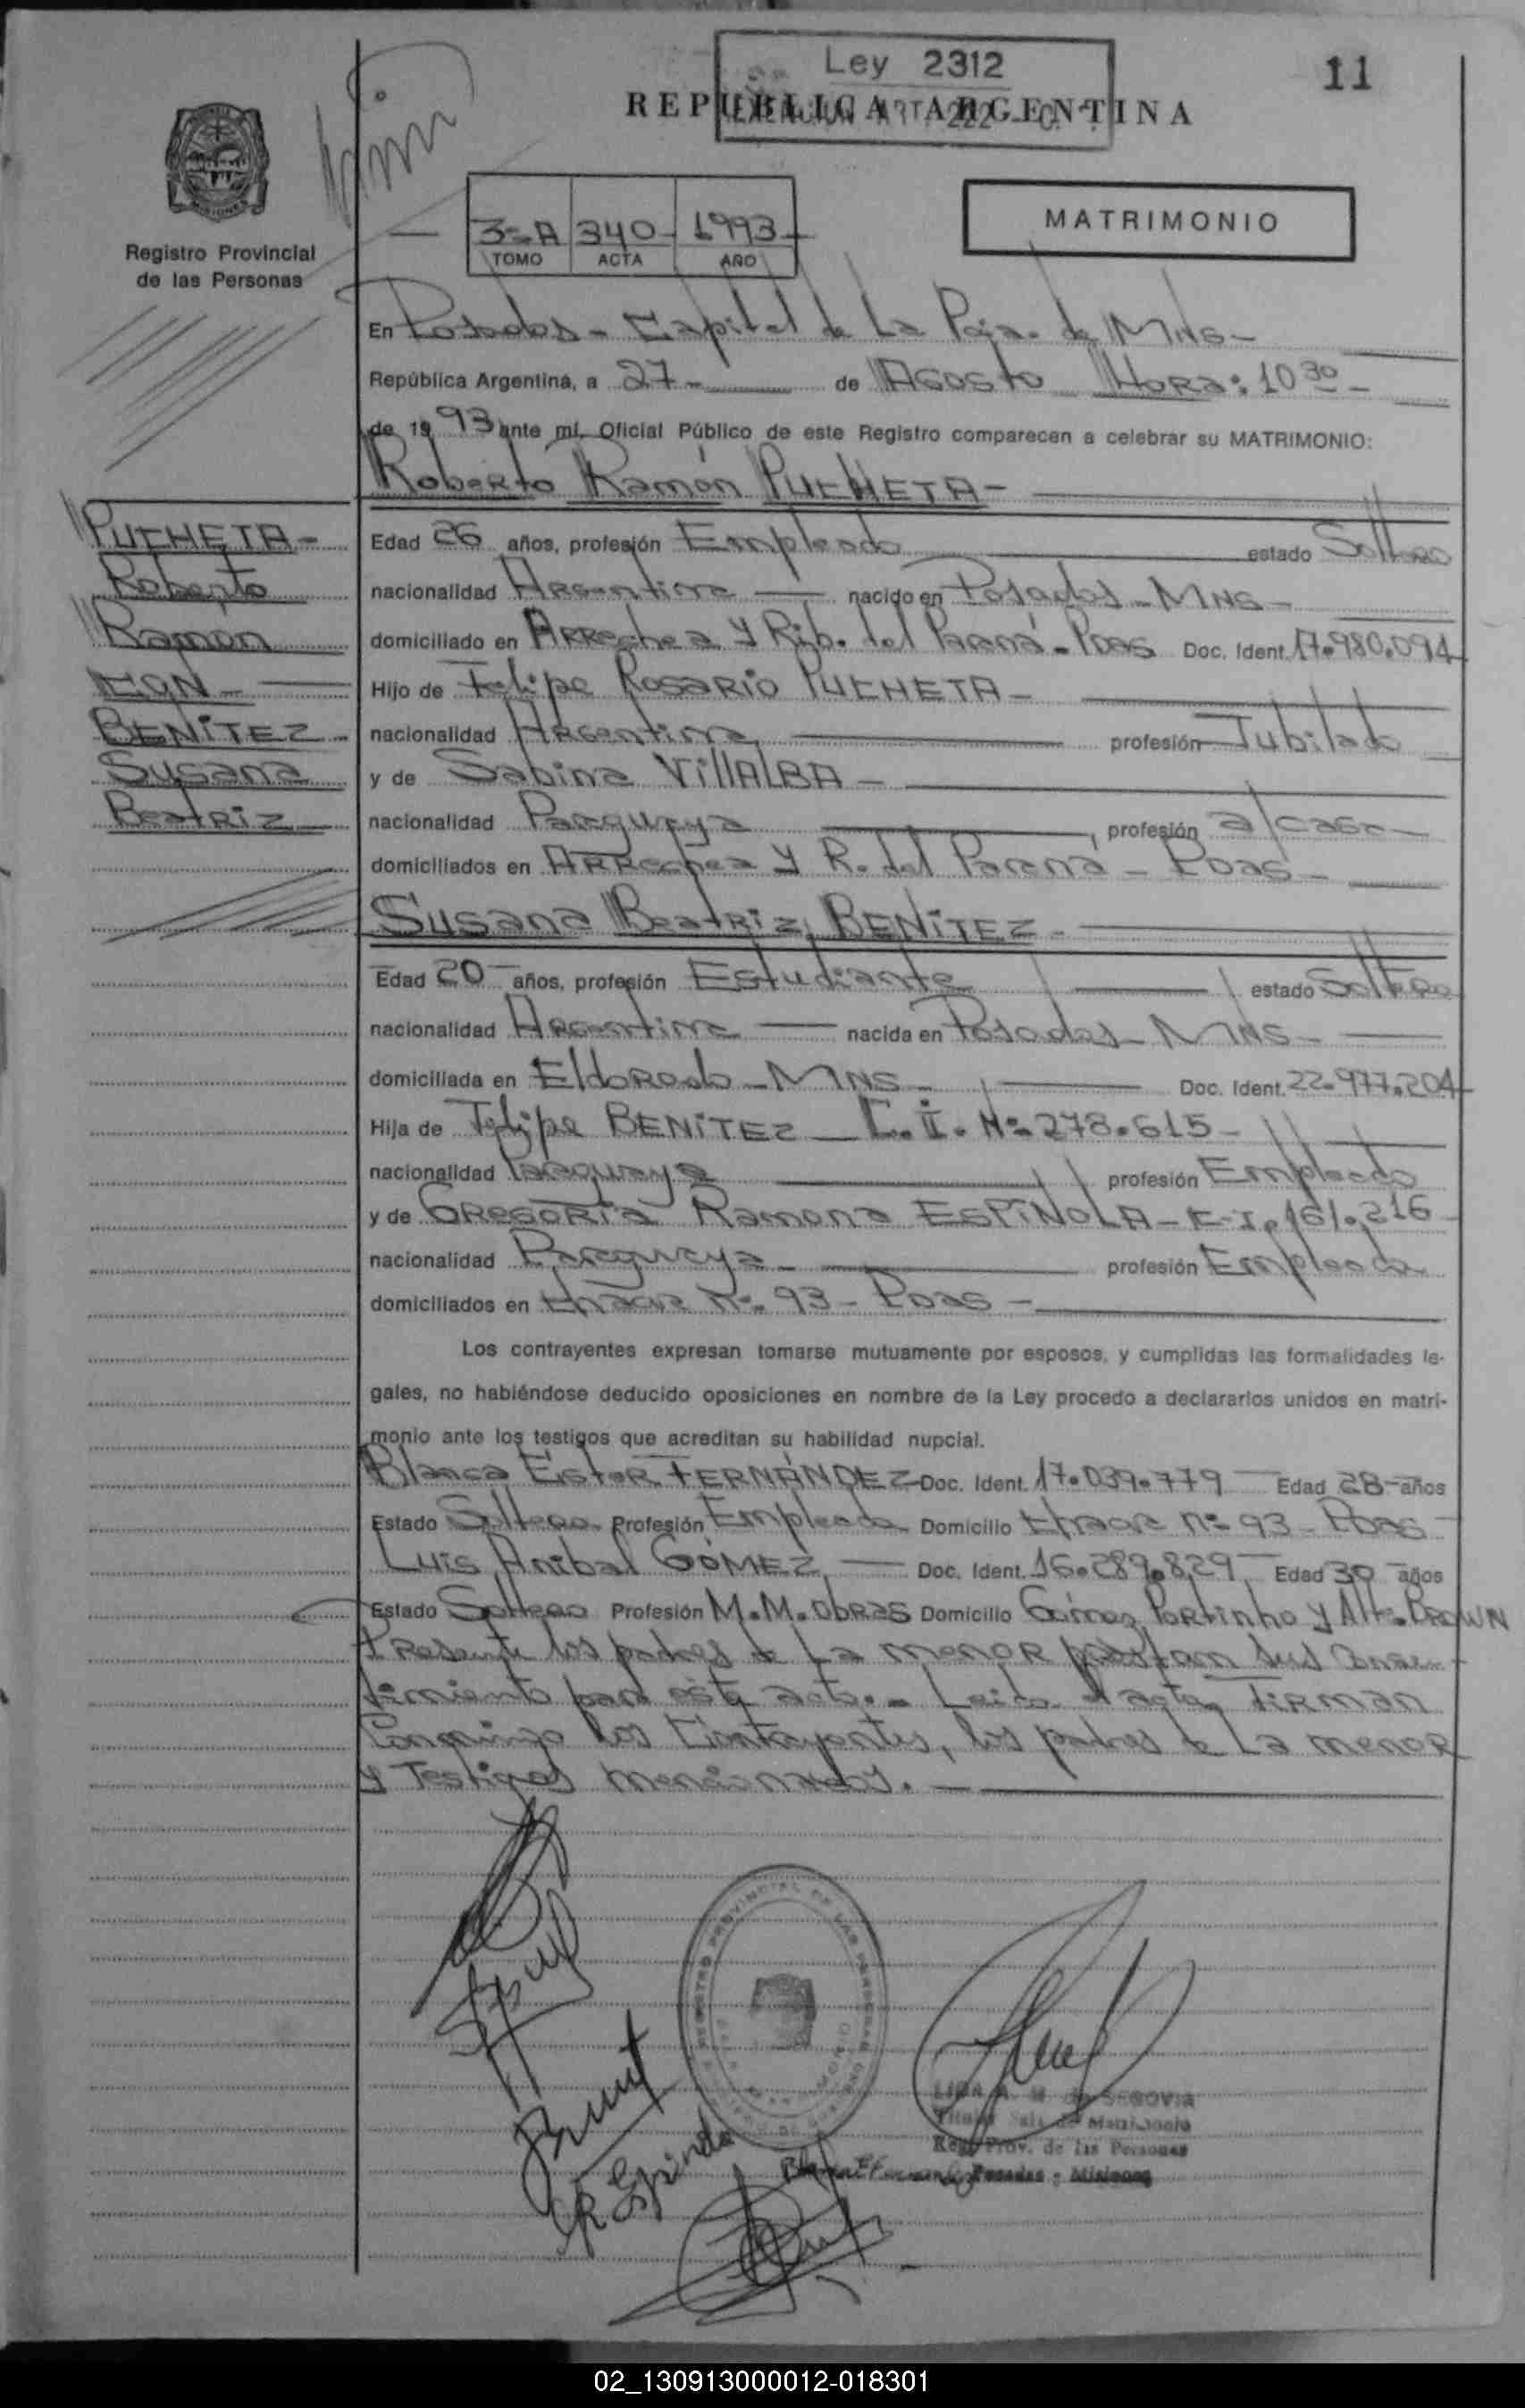 Ley 2312
11
REPUBLICA ARGENTINA
Registro Provincial
de las Personas
3=A 340- 1993-
TOMO ACTA AÑO
MATRIMONIO
En Posadas - Capital de La Pcia. de Mns-
República Argentina, a 27- de Agosto Hora: 10 30-
de 19 93 ante mí, Oficial Público de este Registro comparecen a celebrar su MATRIMONIO:
Roberto Ramón PUCHETA-
PUCHETA-
Roberto
Ramon
CON
BENITEZ-
Susana
Beatriz
Edad 26 años, profesión Empleado estado Soltero
nacionalidad Argentina nacido en Posadas - Mns-
domiciliado en Arrechea y Rib. del Paraná - Pdas Doc. Ident. 17.980.094
Hijo de Felipe Rosario PUCHETA-
nacionalidad Argentina profesión Jubilado
y de Sabina VillALBA-
nacionalidad Paraguaya, profesión a/casa-
domiciliados en Arrechea y R. del Paraná - Pdas-
Susana Beatriz BENITEZ-
Edad 20 años, profesión Estudiante estado Soltera
nacionalidad Argentina nacida en Posadas - Mns-
domiciliada en Eldorado - Mns- Doc. Ident. 22.977.204
Hija de Felipe BENITEZ - C.I. Nº 278.615-
nacionalidad Paraguaya profesión Empleado
y de Gregoria Ramona ESPINOLA - C.I. 161.216
nacionalidad Paraguaya- profesión Empleada
domiciliados en Nº 93 - Pdas-
Los contrayentes expresan tomarse mutuamente por esposos, y cumplidas las formalidades le-
gales, no habiéndose deducido oposiciones en nombre de la Ley procedo a declararlos unidos en matri-
monio ante los testigos que acreditan su habilidad nupcial.
Blanca Ester FERNÁNDEZ Doc. Ident. 17.039.779 Edad 28 años
Estado Soltera Profesión Empleada Domicilio Nº 93 - Pdas
Luis Anibal GÓMEZ Doc. Ident. 16.289.829 Edad 30 años
Estado Soltero Profesión M.M.Obras Domicilio Gómez Portinho y Alte. Brown
Presente los padres de La menor prestam sus Consen-
timiento para este acto.- Leida el acta, firman
Conmigo los Contrayentes, los padres de La menor
y Testigos mencionados.-
REGISTRO PROVINCIAL DE LAS PERSONAS
R Espinola
LIDA de SEGOVIA
Titular Sala de Matrimonio
Reg. Prov. de las Personas
Posadas - Misiones
02_130913000012-018301